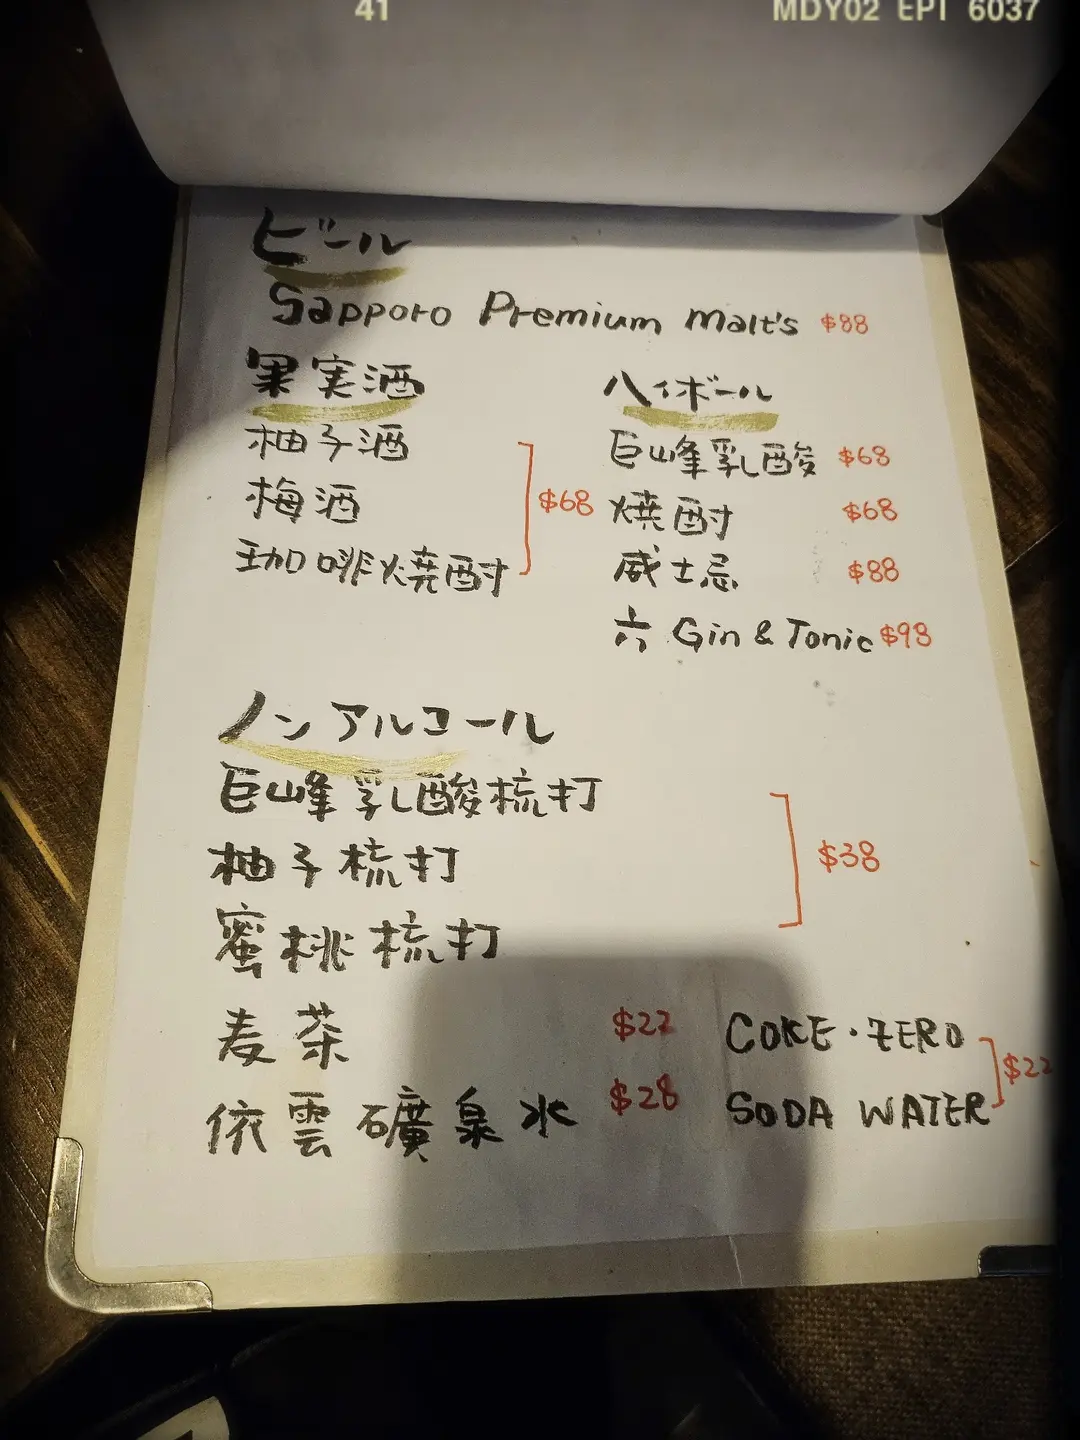 41 MDY02 EPI 6037
ビール
Sapporo Premium Malt's $88
果実酒
柚子酒
梅酒
珈啡燒酎
$68
ハイボール
巨峰乳酸 $68
燒酎 $68
威士忌 $88
六 Gin & Tonic $98
ノンアルコール
巨峰乳酸梳打
柚子梳打
蜜桃梳打
$38
麦茶 $22
依雲礦泉水 $28
COKE・ZERO
SODA WATER
$22